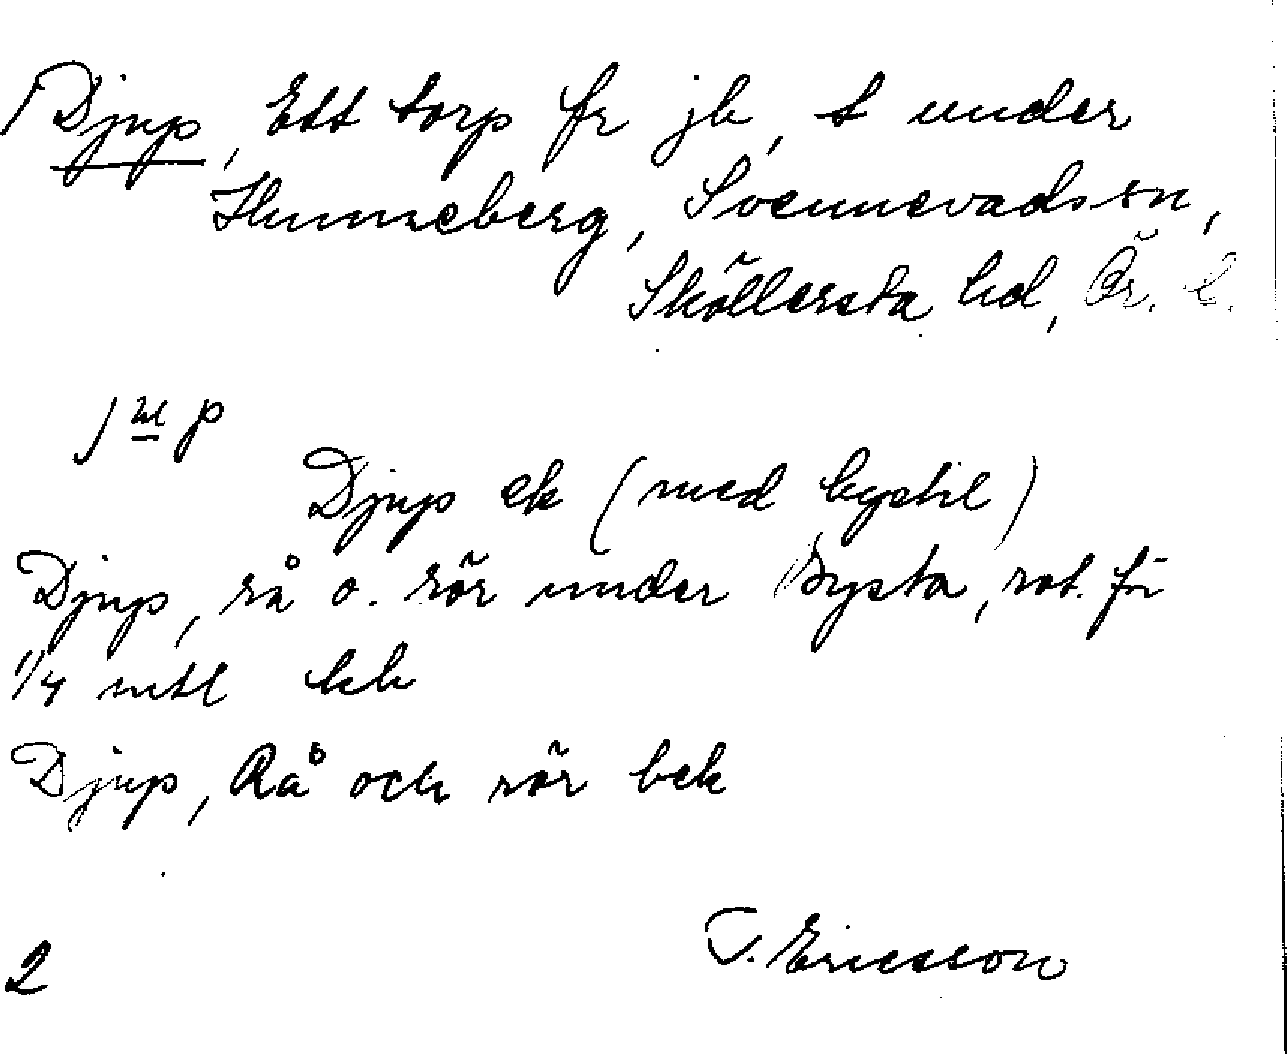 Djup, Ett torp fr jb, t under
Hunneberg, Svennevads sn,
Sköllersta hd, Ör. l.
Djup ek (med bystil)
Djup, rå o. rör under Bysta, rot. för
1/4 mtl kk
Djup, Rå och rör bek
T. Ericsson
2